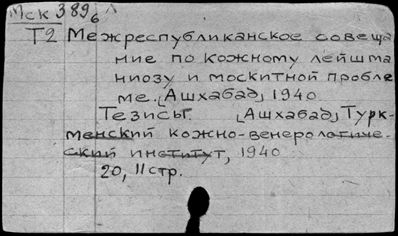 Мск 389б Л
Т2 Межреспубликанское совеща
ние по кожному лейшма
ниозу и москитной пробле
ме. [Ашхабад] 1940
Тезисы. [Ашхабад] Турк-
менский кожно-венерологиче-
ский институт, 1940
20, 11 стр.